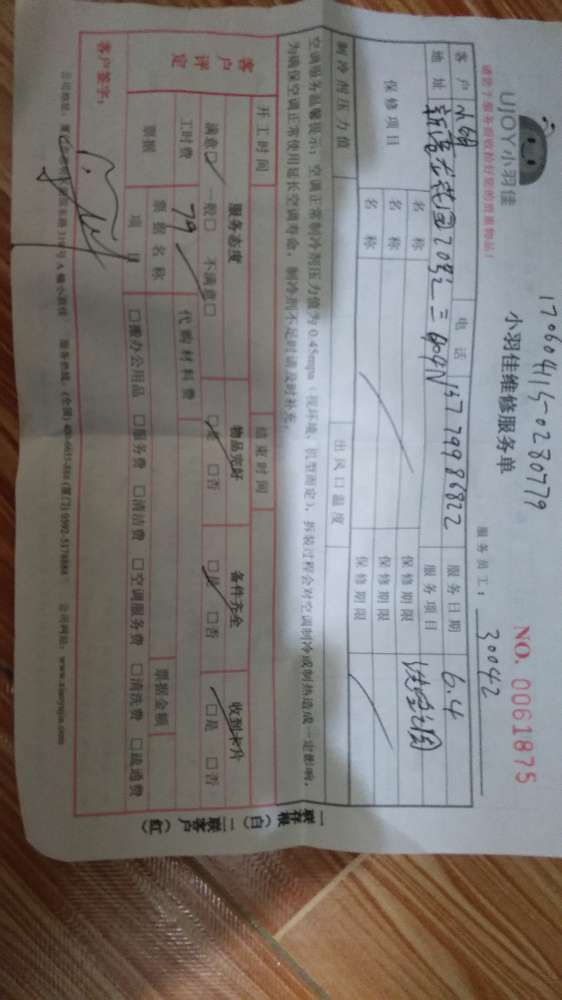 170604115-0280779
UJOY小羽佳
小羽佳维修服务单
NO. 0061875
请您于服务前收检好您的贵重物品!
服务员工: 30042
客户 电话 13779986822 服务日期 6.4
地址 服务项目
保修项目 名称 保修期限
名称 保修期限
名称 保修期限
制冷剂压力值 出风口温度
空调服务温馨提示:空调正常制冷剂压力值为0.45mpa(视环境、机型而定),拆装过程会对空调制冷或制热造成一定影响,
为确保空调正常使用延长空调寿命,制冷剂不足时请及时补充。
开工时间 结束时间
客户评定 服务态度 物品完好 备件齐全 收到卡片
满意□ 一般□ 不满意□ □是 □否 □是 □否 □是 □否
工时费 79 代购材料费
票据 票据名称 票据金额
项目 □搬办公用品 □服务费 □清洁费 □空调服务费 □清洗费 □疏通费
客户签字:
公司网站:www.xiaoyujia.com
一联存根(白) 二联客户(红)